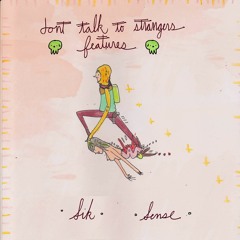 dont talk to strangers
features
· Sik · · Sense ·